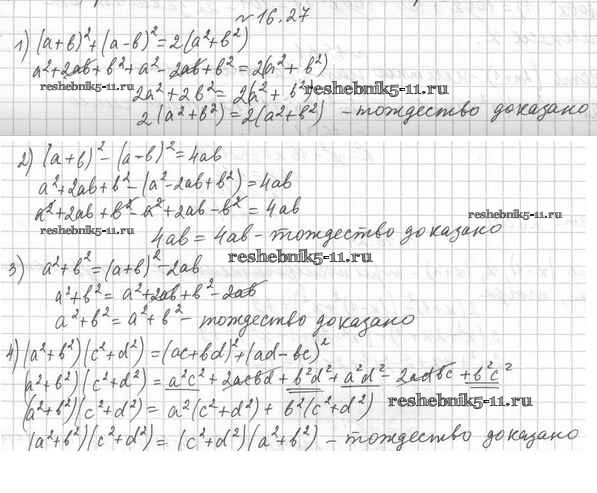 №16.27
1) (a+b)²+(a-b)²=2(a²+b²)
a²+2ab+b²+a²-2ab+b²=2(a²+b²)
reshebnik5-11.ru
2a²+2b²=2(a²+b²)
reshebnik5-11.ru
2(a²+b²)=2(a²+b²) - тождество доказано
2) (a+b)²-(a-b)²=4ab
a²+2ab+b²-(a²-2ab+b²)=4ab
a²+2ab+b²-a²+2ab-b²=4ab
reshebnik5-11.ru
reshebnik5-11.ru
4ab=4ab-тождество доказано
reshebnik5-11.ru
3) a²+b²=(a+b)²-2ab
a²+b²=a²+2ab+b²-2ab
a²+b²=a²+b²- тождество доказано
4) (a²+b²)(c²+d²)=(ac+bd)²+(ad-bc)²
(a²+b²)(c²+d²)=a²c²+2acbd+b²d²+a²d²-2adbc+b²c²
(a²+b²)(c²+d²)=a²(c²+d²)+b²(c²+d²)
reshebnik5-11.ru
(a²+b²)(c²+d²)=(c²+d²)(a²+b²) - тождество доказано
reshebnik5-11.ru